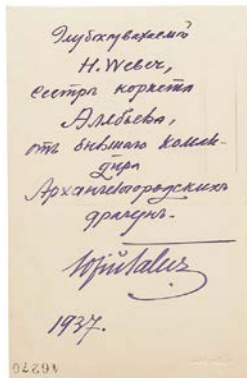 Глубокоуважаемой
Н. Wевеч,
сестрѣ корнета
Алябьева,
отъ бывшаго коман-
дира
Архангелогородскихъ
драгунъ.
1937.
16270